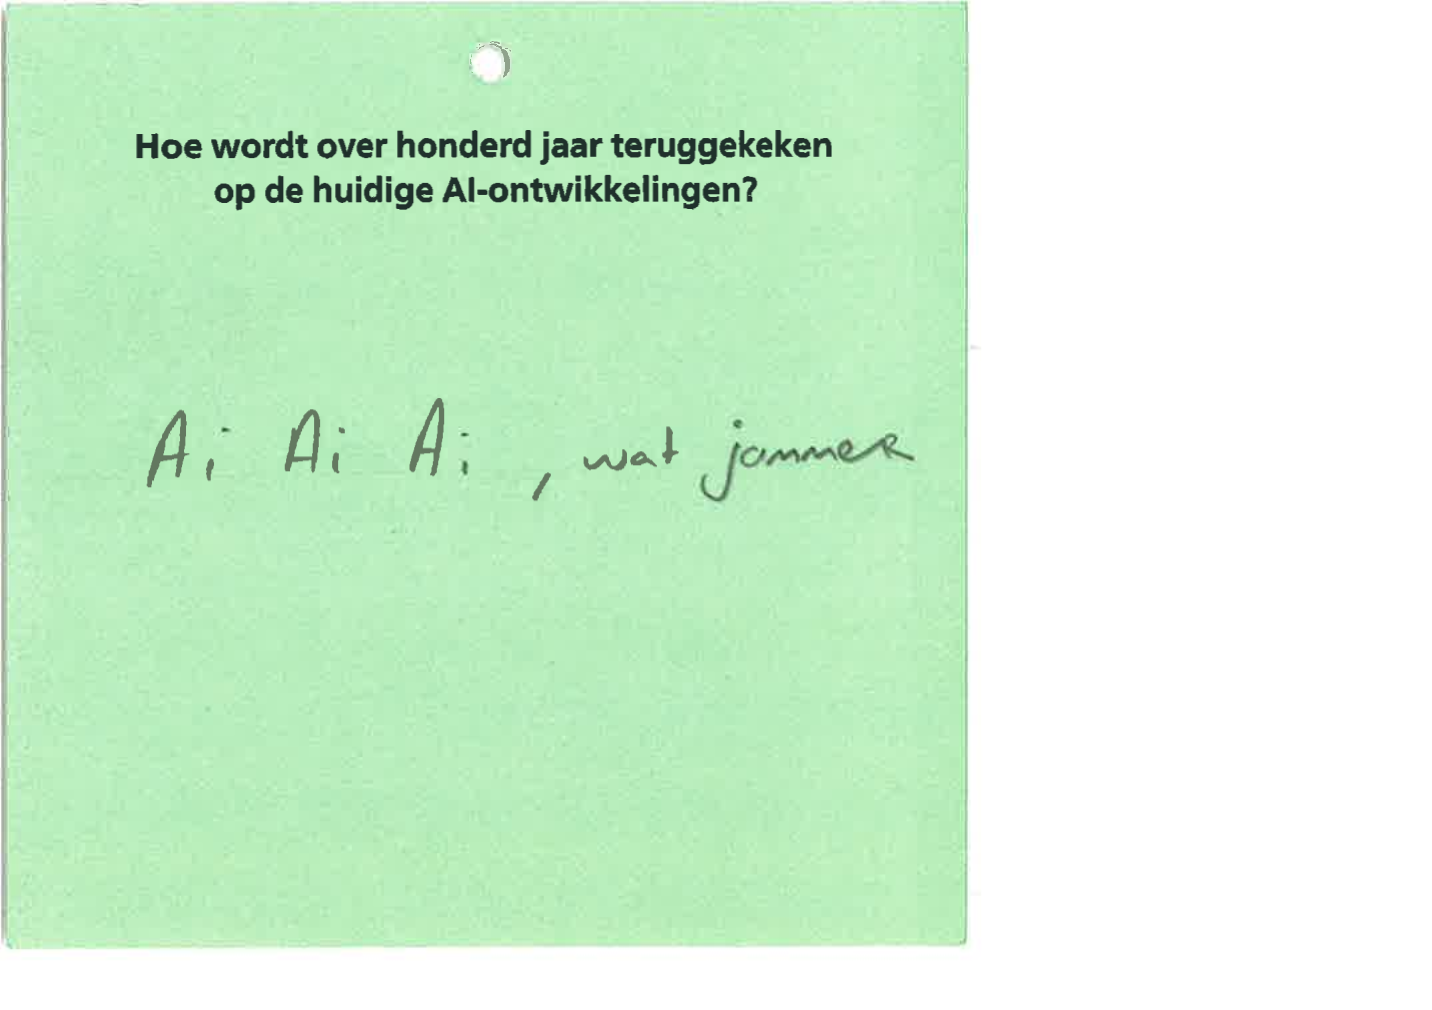 Hoe wordt over honderd jaar teruggekeken
op de huidige AI-ontwikkelingen?
Ai Ai Ai, wat jammer